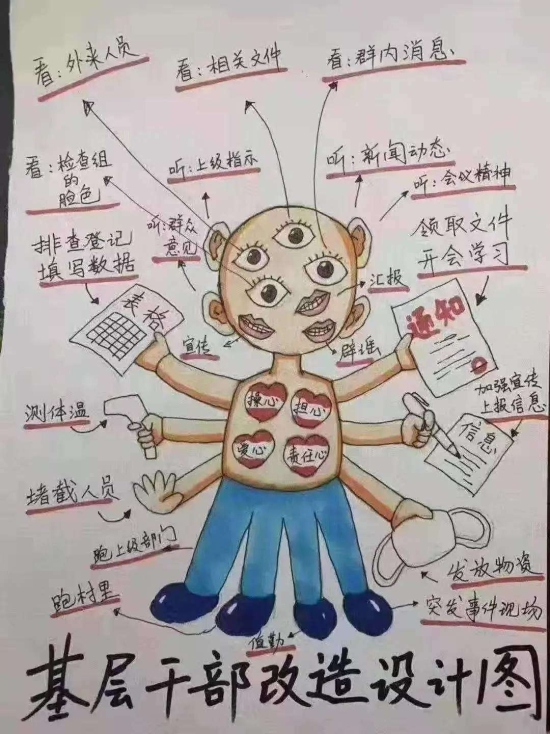 看：外来人员
看：相关文件
看：群内消息
看：检查组
的
脸色
听：上级指示
听：新闻动态
听：会议精神
听：群众
意见
排查登记
填写数据
领取文件
开会学习
汇报
宣传
辟谣
表格
通知
测体温
操心
担心
爱心
责任心
加强宣传
上报信息
信息
堵截人员
跑上级部门
跑村里
发放物资
突发事件现场
值勤
基层干部改造设计图